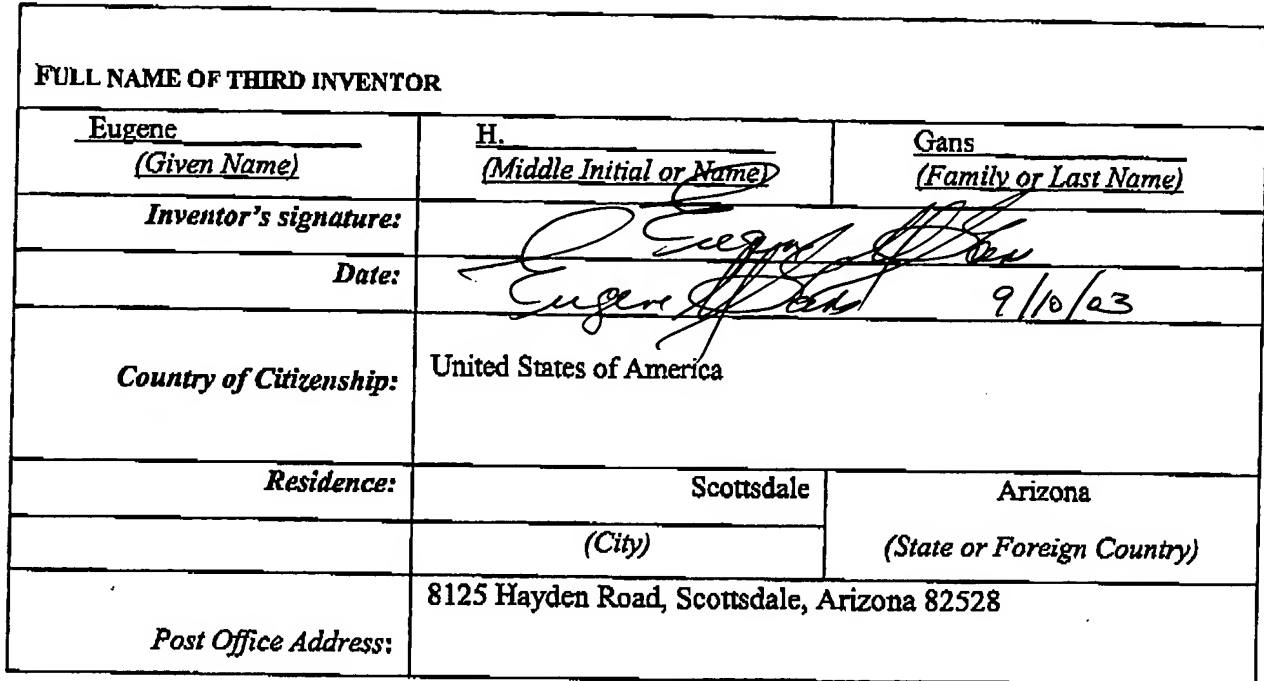 FULL NAME OF THIRD INVENTOR
Eugene H. Gans
(Given Name) (Middle Initial or Name) (Family or Last Name)
Inventor's signature: Eugene H Gans
Date: Eugene H Gans 9/10/03
Country of Citizenship: United States of America
Residence: Scottsdale Arizona
(City) (State or Foreign Country)
8125 Hayden Road, Scottsdale, Arizona 82528
Post Office Address: